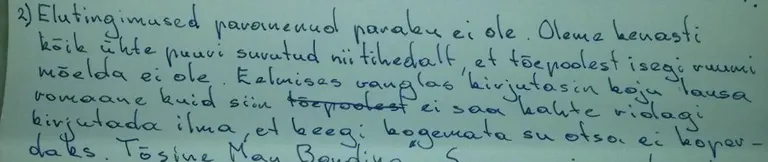 2) Elutingimused paranenud paraku ei ole. Oleme kenasti
kõik ühte puuri surutud nii tihedalt, et tõepoolest isegi ruumi
mõelda ei ole. Eelmises vanglas kirjutasin koju lausa
romaane kuid siin tõepoolest ei saa kahte ridagi
kirjutada ilma, et keegi kogemata su otsa ei koper-
daks. Tõsine May